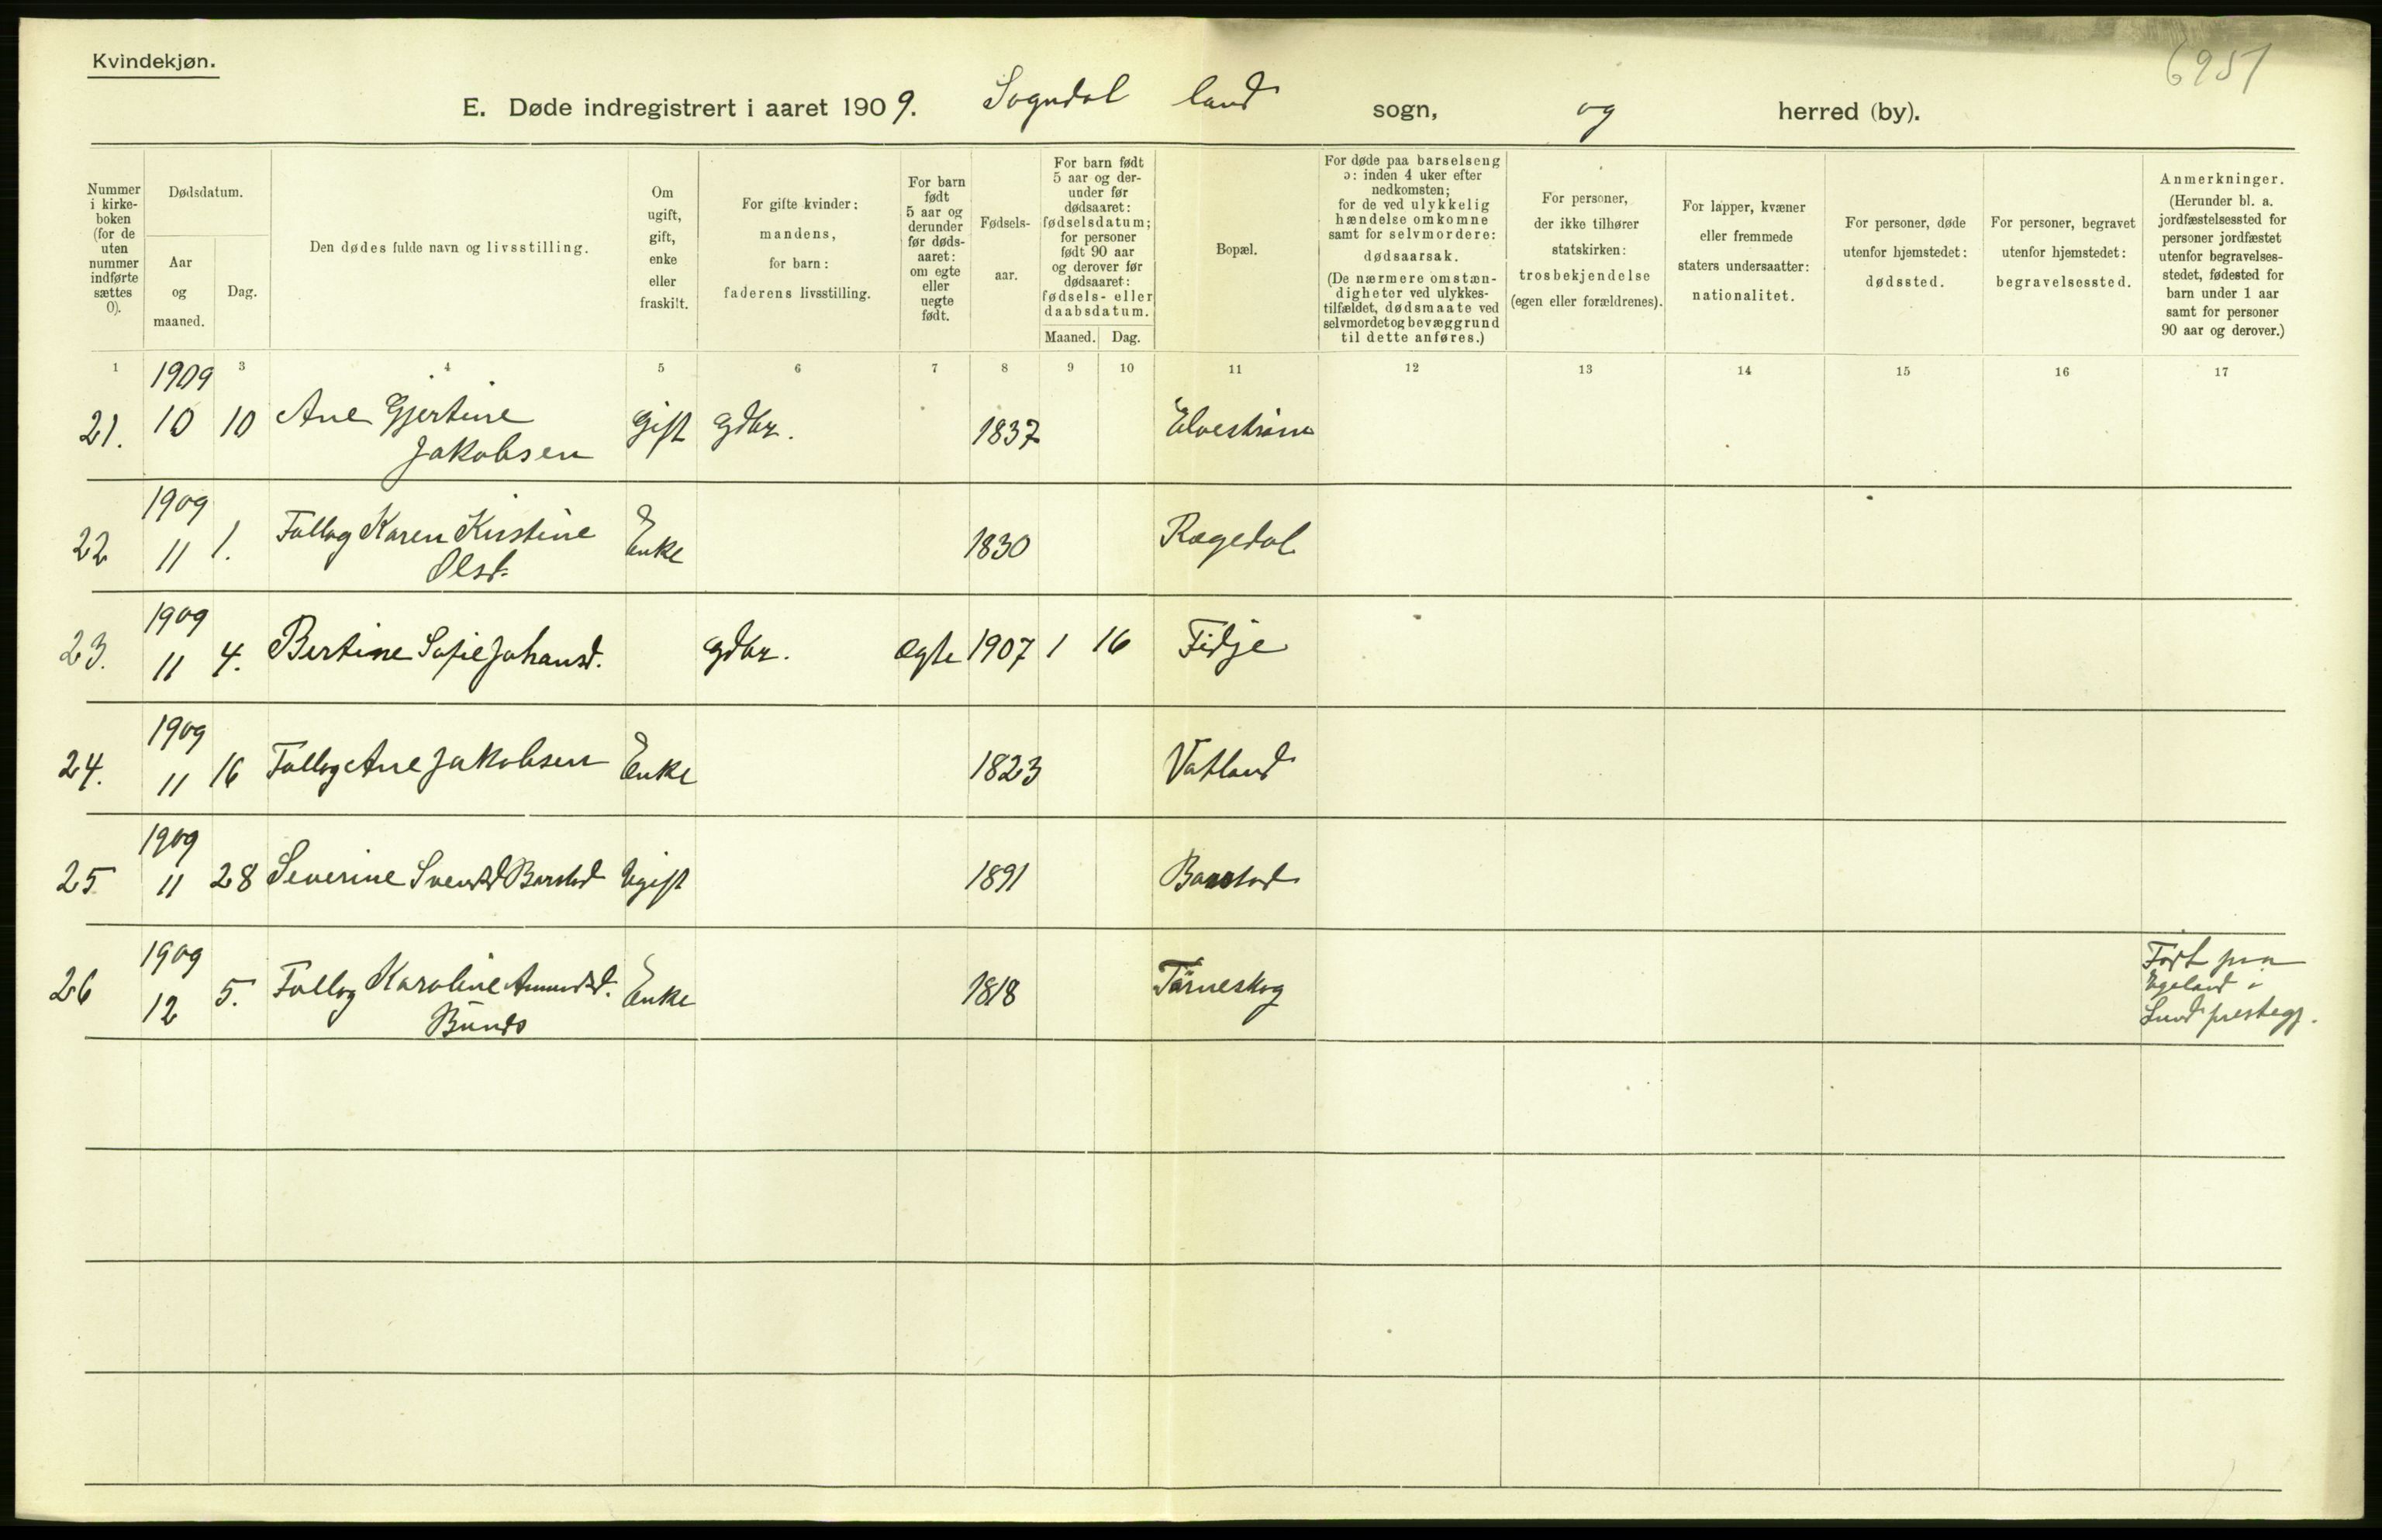 Kvindekjøn.
6951
E. Døde indregistrert i aaret 1909. Sogndal land sogn, og herred (by).
Nummer
i kirke-
boken
(for de
uten
nummer
indførte
sættes
0).
Dødsdatum.
Aar
og
maaned.
Dag.
Den dødes fulde navn og livsstilling.
Om
ugift,
gift,
enke
eller
fraskilt.
For gifte kvinder:
mandens,
for barn:
faderens livsstilling.
For barn
født
5 aar og
derunder
før døds-
aaret:
om egte
eller
uegte
født.
Fødsels-
aar.
For barn født
5 aar og der-
under før
dødsaaret:
fødselsdatum;
for personer
født 90 aar
og derover før
dødsaaret:
fødsels- eller
daabsdatum.
Maaned. Dag.
Bopæl.
For døde paa barselseng
ɔ: inden 4 uker efter
nedkomsten;
for de ved ulykkelig
hændelse omkomne
samt for selvmordere:
dødsaarsak.
(De nærmere omstæn-
digheter ved ulykkes-
tilfældet, dødsmaate ved
selvmordet og bevæggrund
til dette anføres.)
For personer,
der ikke tilhører
statskirken:
trosbekjendelse
(egen eller forældrenes).
For lapper, kvæner
eller fremmede
staters undersaatter:
nationalitet.
For personer, døde
utenfor hjemstedet:
dødssted.
For personer, begravet
utenfor hjemstedet:
begravelsessted.
Anmerkninger.
(Herunder bl. a.
jordfæstelsessted for
personer jordfæstet
utenfor begravelses-
stedet, fødested for
barn under 1 aar
samt for personer
90 aar og derover.)
1 3 4 5 6 7 8 9 10 11 12 13 14 15 16 17
1909
21. 10 10 Ane Gjertine Gift gdbr. 1837 Elvestrøm
Jakobsen
1909
22 11 1. Follog Karen Kirstine Enke 1830 Rægedal
Olsd.
1909
23. 11 4. Bertine Sofie Johansd. gdbr. Ægte 1907 1 16 Fidje
1909
24. 11 16 Follog Ane Jakobsen Enke 1823 Vatland
1909
25 11 28 Severine Svendsd Barstad Ugift 1891 Barstad
1909
26 12 5. Follog Karoline Amundsd. Enke 1818 Tårneskog
Født paa
Egeland i
Lund prestegj.